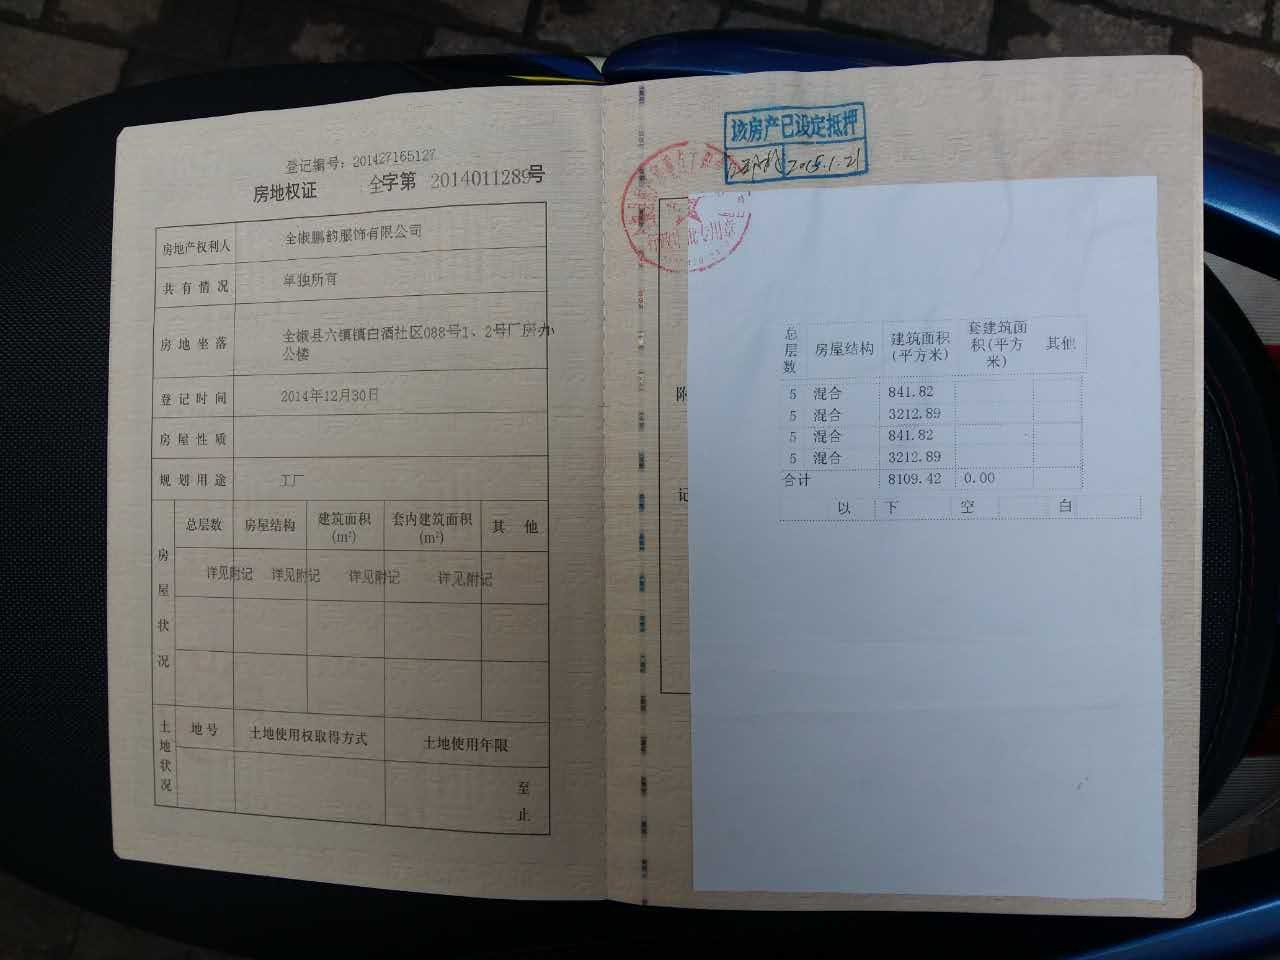 登记编号：201427165127
房地权证 全字第 2014011289号
房地产权利人 全椒鹏韵服饰有限公司
共有情况 单独所有
房地坐落 全椒县六镇镇白酒社区088号1、2号厂房办
公楼
登记时间 2014年12月30日
房屋性质
规划用途 工厂
房屋状况
总层数 房屋结构 建筑面积(m²) 套内建筑面积(m²) 其他
详见附记 详见附记 详见附记 详见附记
土地状况
地号 土地使用权取得方式 土地使用年限
至
止
该房产已设定抵押
2015.1.21
专用章
附
记
总层数 房屋结构 建筑面积(平方米) 套建筑面积(平方米) 其他
5 混合 841.82
5 混合 3212.89
5 混合 841.82
5 混合 3212.89
合计 8109.42 0.00
以下空白